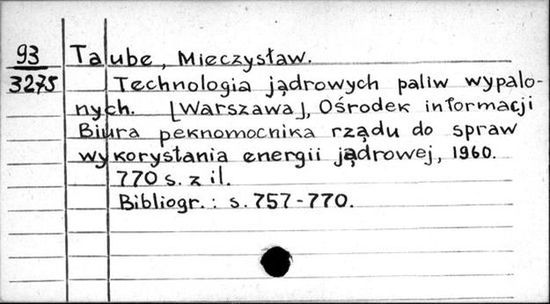 93 Taube, Mieczysław.
3275 Technologia jądrowych paliw wypalo-
nych. [Warszawa], Ośrodek informacji
Biura peknomocnika rządu do spraw
wykorystania energii jądrowej, 1960.
770 s. z il.
Bibliogr.: s. 757-770.